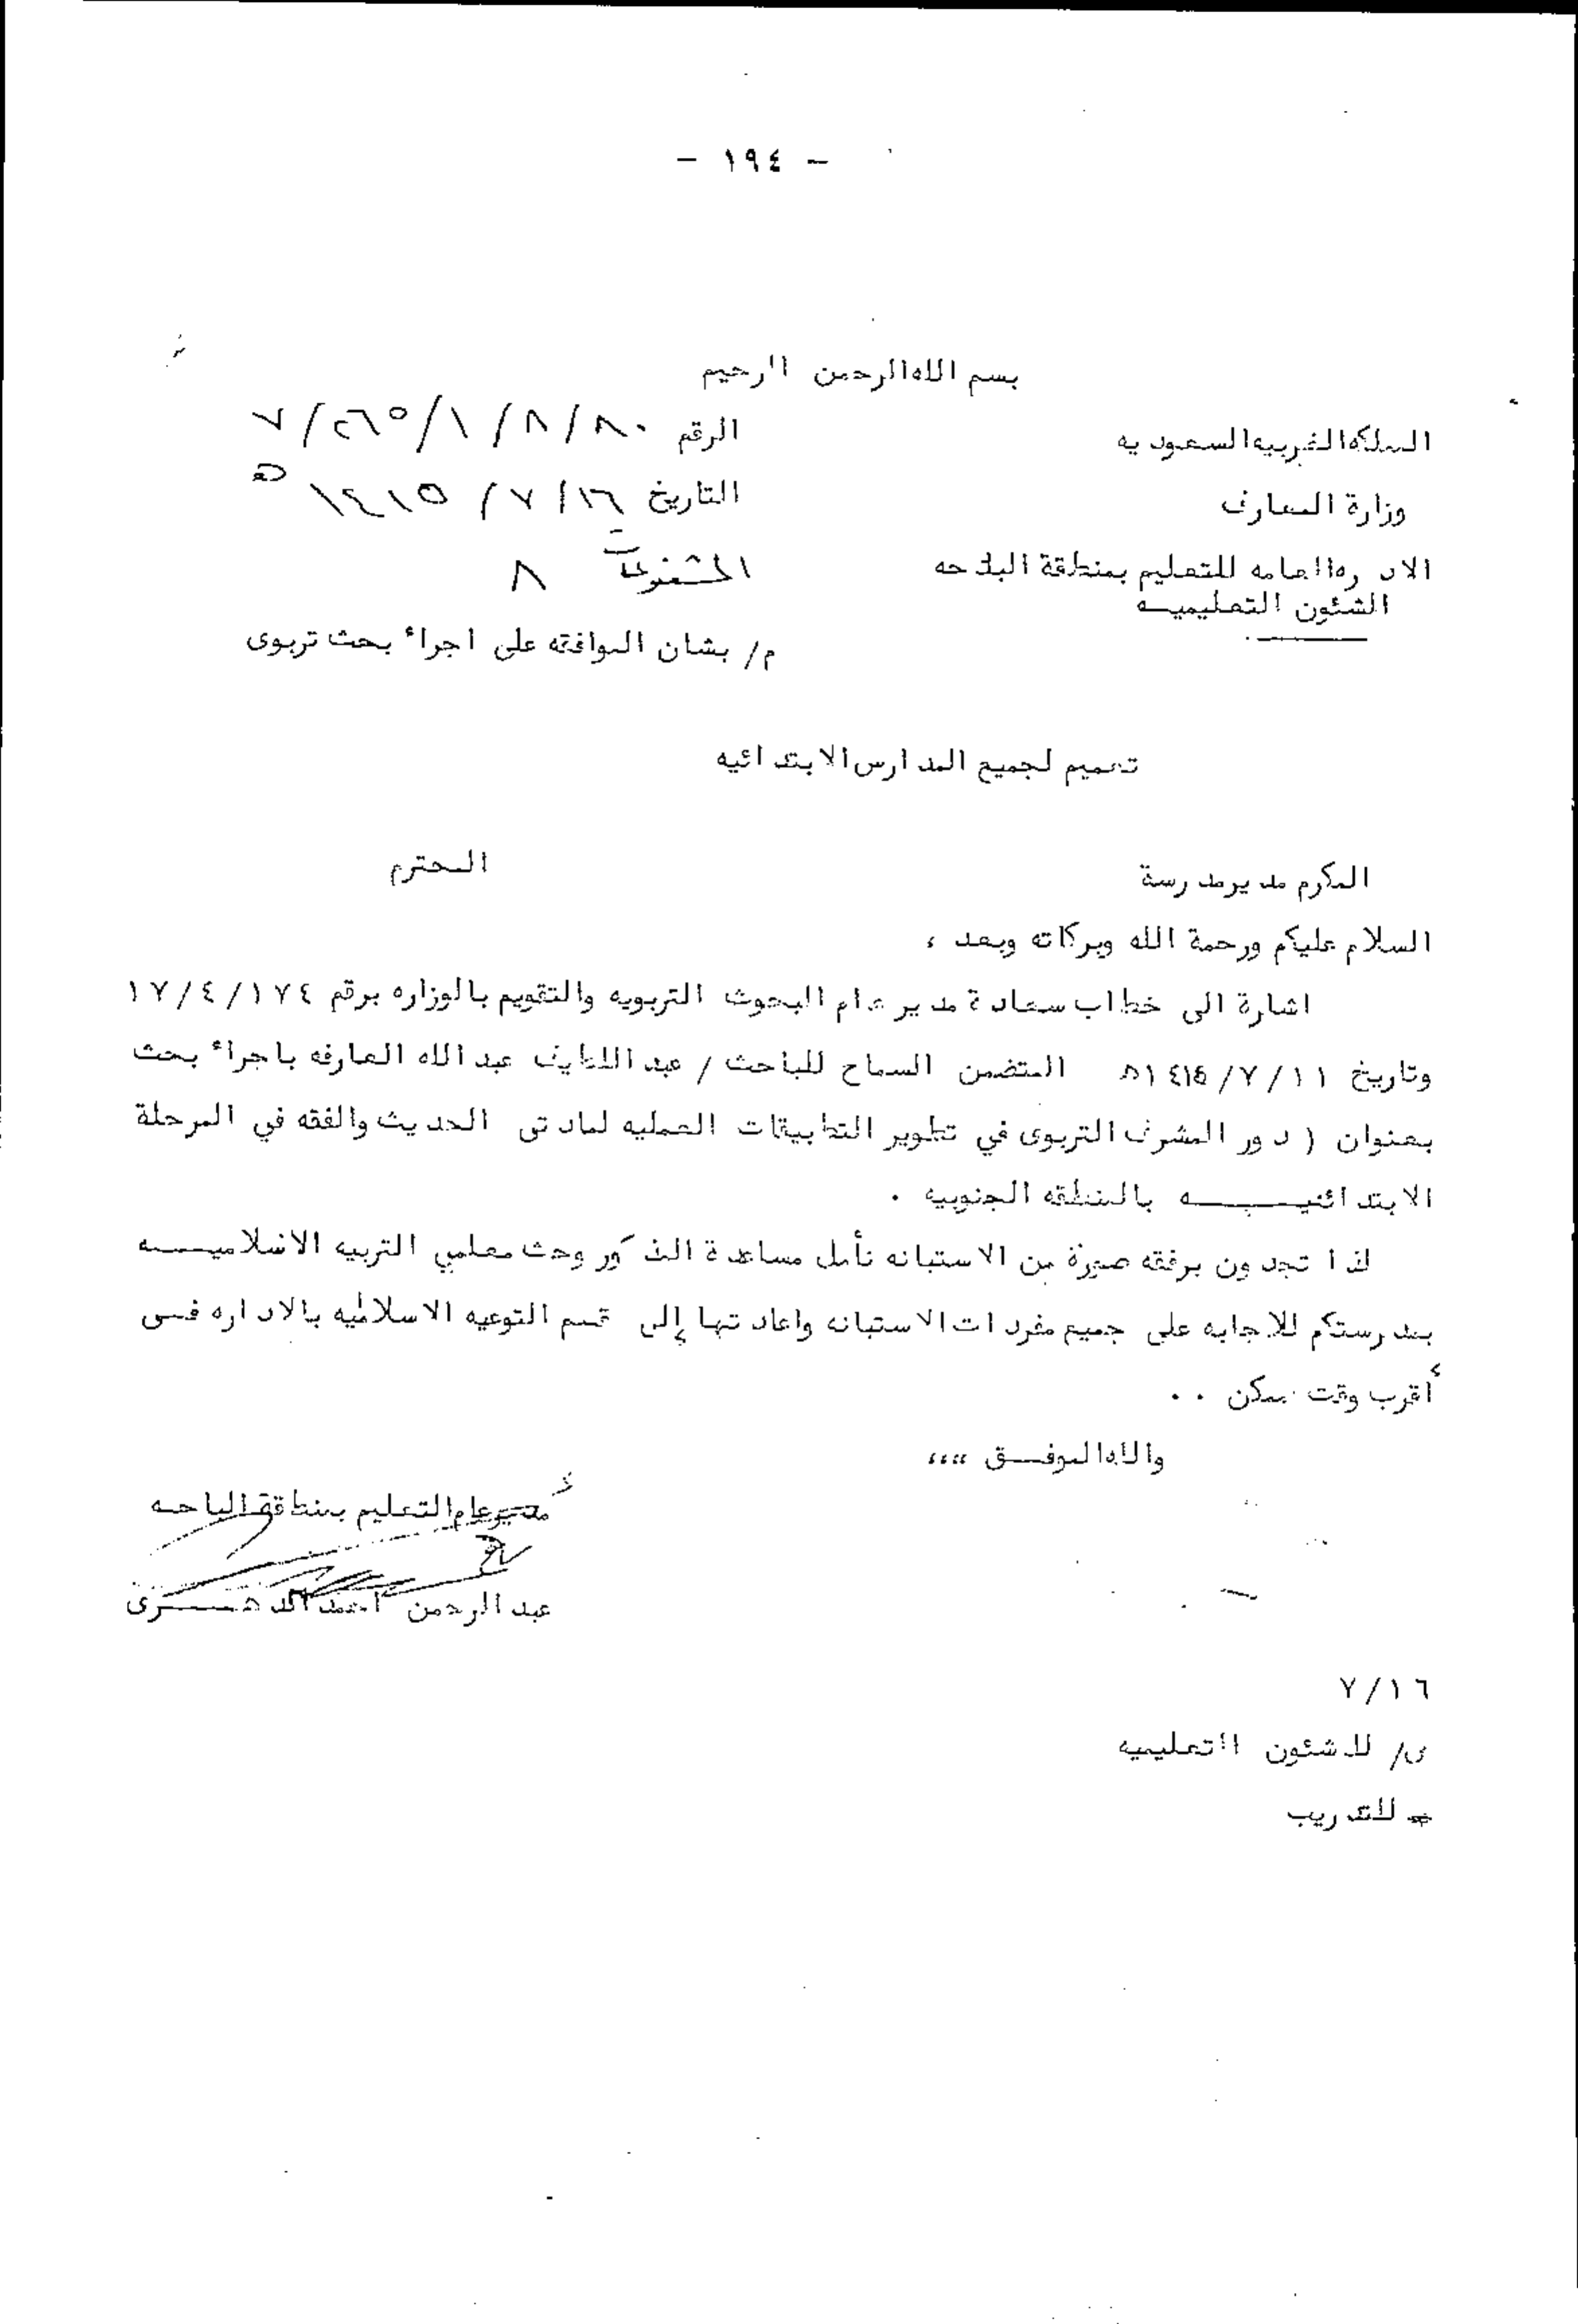 - ١٩٤ -
بسم الله الرحمن الرحيم
المملكه العربيه السعوديه
الرقم ٧/٢٦٥/١/٨/٨٠
وزارة المعارف
التاريخ ١٦/٧/١٤١٥ ه
الاداره العامه للتعليم بمنطقة الباحه
المشفوعات ٨
الشئون التعليميـــه
م/ بشان الموافقه على اجراء بحث تربوى
تعميم لجميع المدارس الابتدائيه
المكرم مدير مدرسة المحترم
السلام عليكم ورحمة الله وبركاته وبعد ،
اشارة الى خطاب سعادة مدير عام البحوث التربويه والتقويم بالوزاره برقم ١٧/٤/١٧٤
وتاريخ ١١/٧/١٤١٥ه المتضمن السماح للباحث / عبد اللطيف عبد الله العارفه باجراء بحث
بعنوان ( دور المشرف التربوى في تطوير التطبيقات العمليه لمادتى الحديث والفقه في المرحلة
الابتدائيــــــه بالمنطقه الجنوبيه .
لذا تجدون برفقه صورة من الاستبانه نأمل مساعدة المذكور وحث معلمي التربيه الاسلاميـــه
بمدرستكم للاجابه على جميع مفردات الاستبانه واعادتها إلى قسم التوعيه الاسلاميه بالاداره فــى
أقرب وقت ممكن ..
والله الموفــق ،،،،
مدير عام التعليم بمنطقة الباحـه
عبد الرحمن احمد
٧/١٦
ص/ للشئون التعليميه
* للتدريب